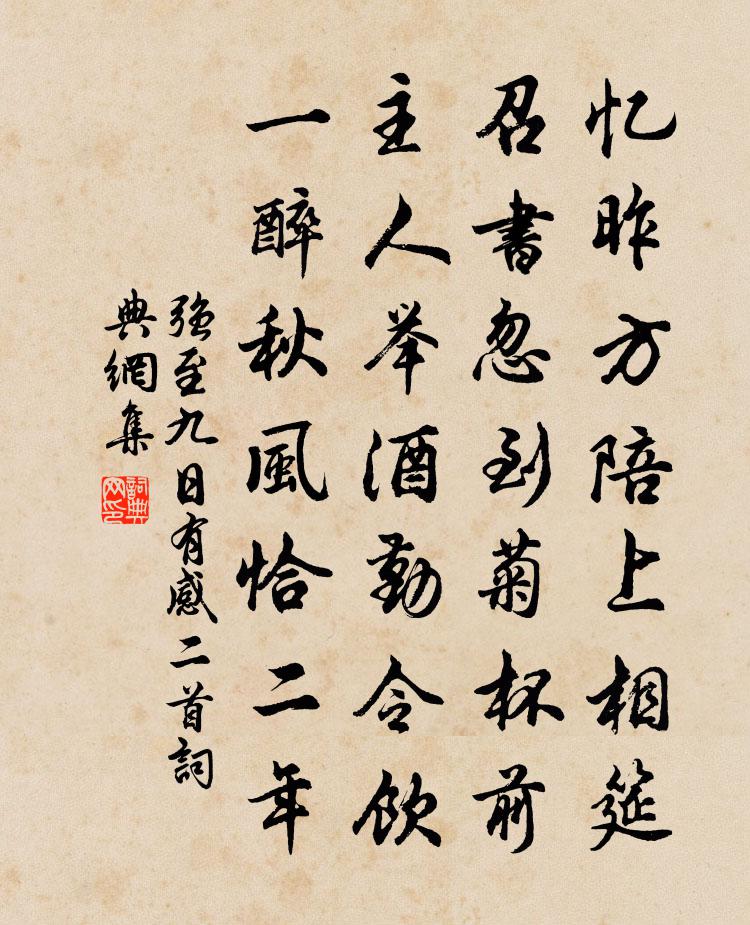 忆昨方陪上相筵
召書忽到菊杯前
主人举酒勤令飲
一醉秋風恰二年
强至九日有感二首詞
典網集
詞典
网印